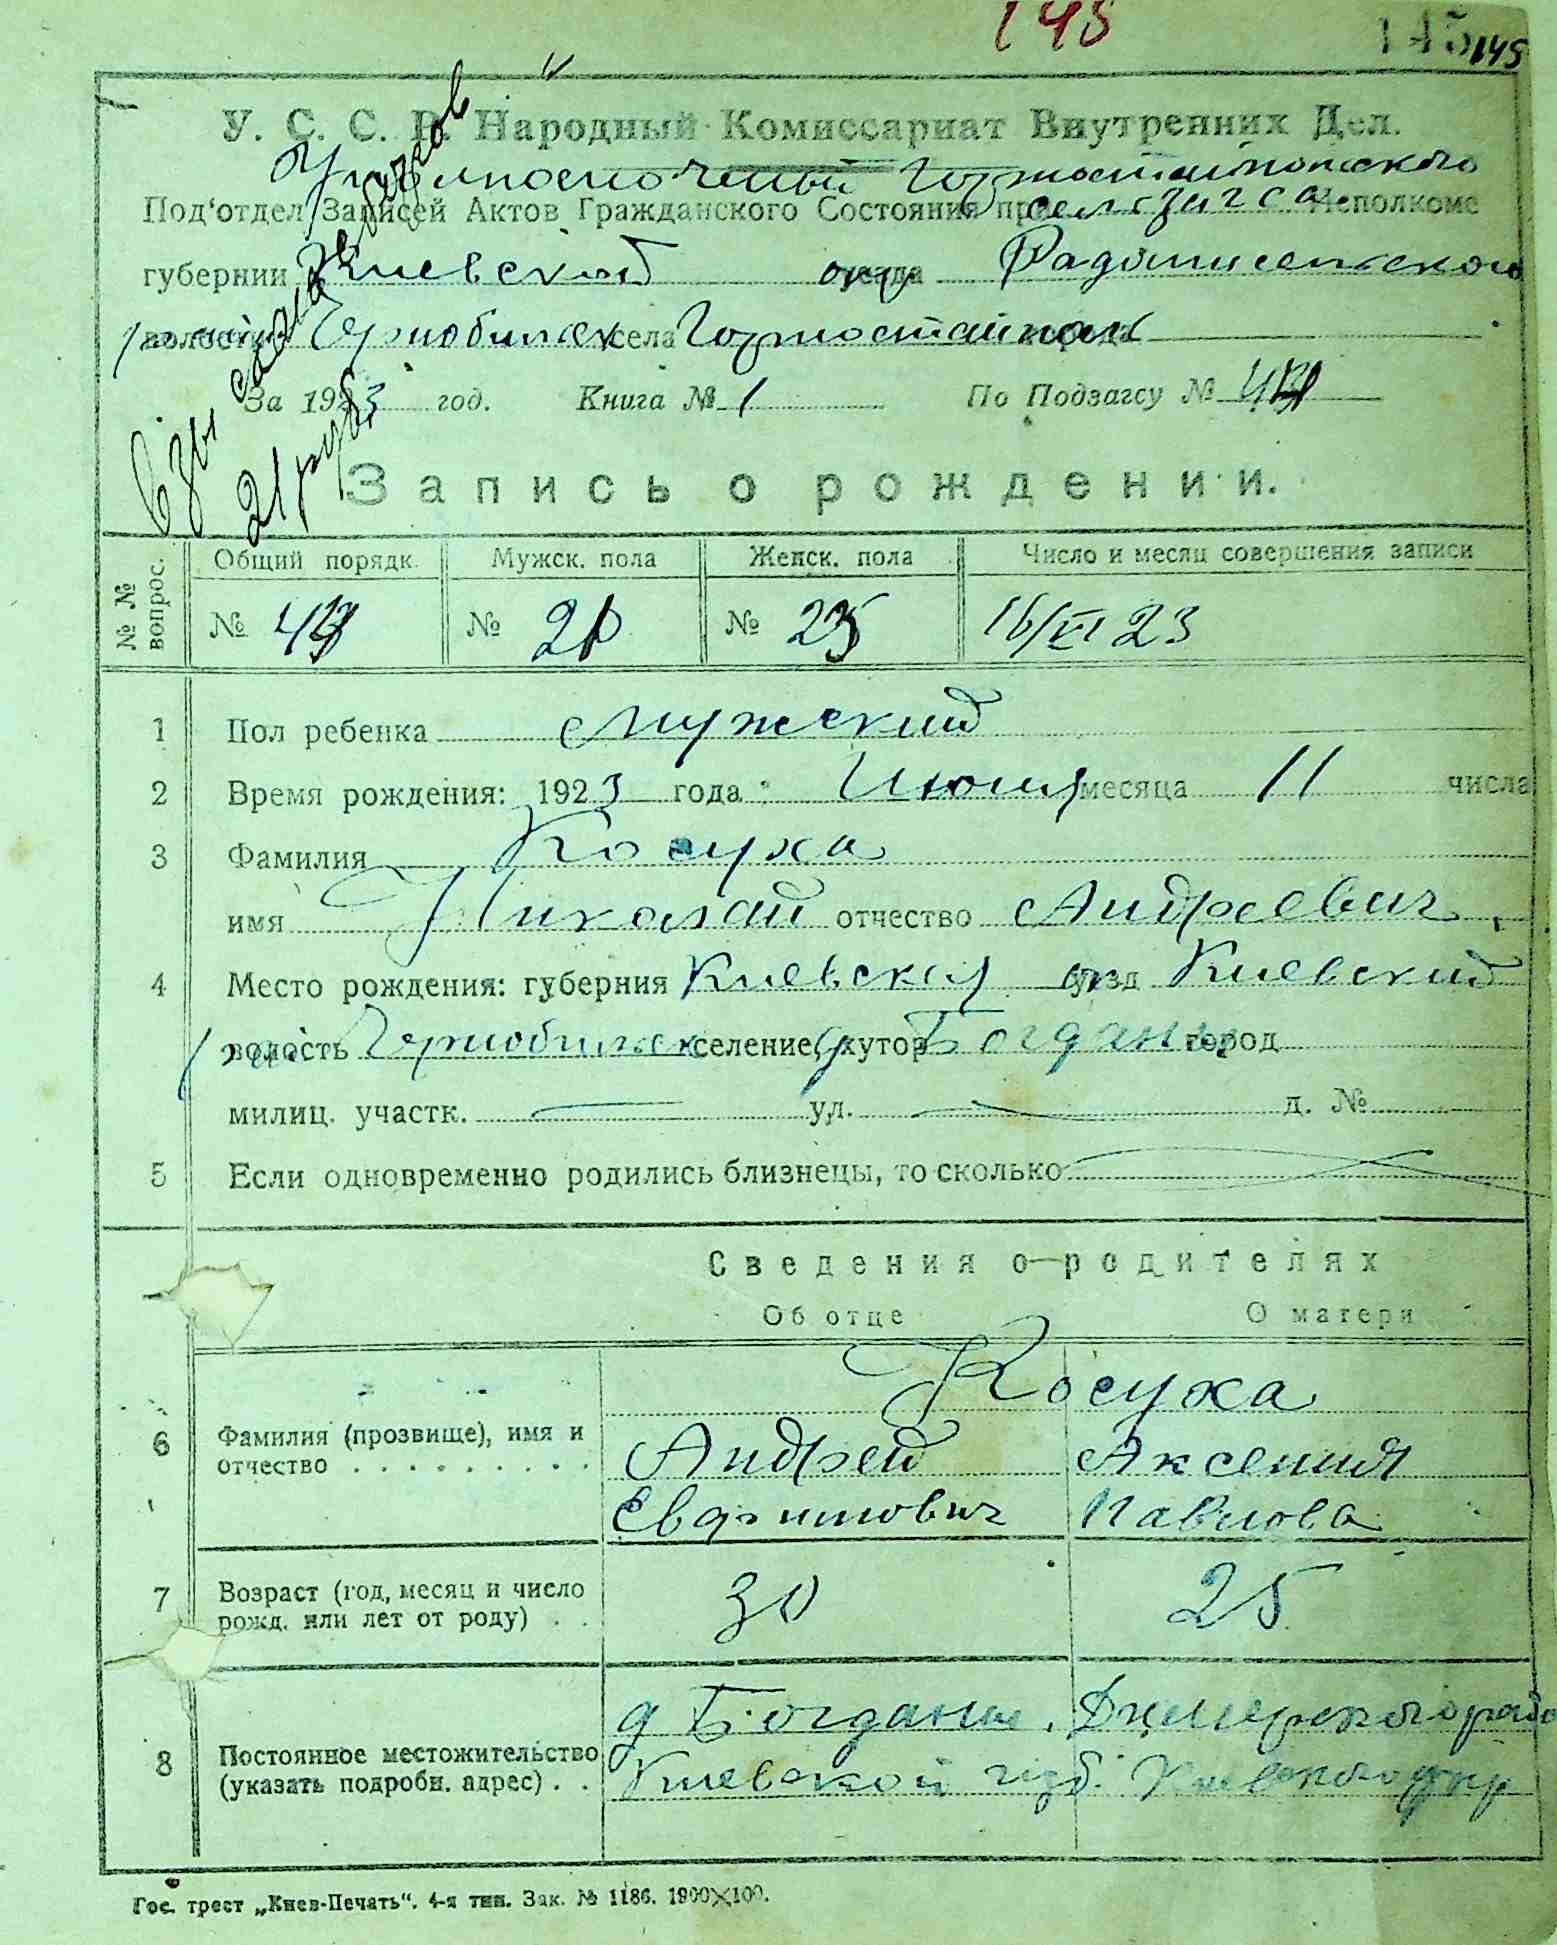 145
145 145
У. С. С. Р. Народный Комиссариат Внутренних Дел.
Уполномоченный Горностайпольского
Под'отдел Записей Актов Гражданского Состояния при сельзагса Исполкоме
губернии Киевской окр уезда Радомисельского
волости Чернобыльск села Горностайполь
За 1923 год. Книга № 1 По Подзагсу №
21 руб
Запись о рождении.
№ № вопрос. Общий порядк. Мужск. пола Женск. пола Число и месяц совершения записи
№ № № 16/VI 23
1 Пол ребенка мужский
2 Время рождения: 1923 года Июня месяца 11 числа
3 Фамилия Косуха
имя Николай отчество Андреевич
4 Место рождения: губерния Киевская уезд Киевский
волость Чернобыльск селение, хутор Богданы город
милиц. участк. ул. д. №
5 Если одновременно родились близнецы, то сколько
Сведения о родителях
Об отце О матери
Косуха
6 Фамилия (прозвище), имя и отчество Андрей Аксения
Павлова
7 Возраст (год, месяц и число рожд. или лет от роду) 30 25
8 Постоянное местожительство (указать подробн. адрес) д Богданы, Дымерского райо
Киевской губ. Киевского окр
Гос. трест „Киев-Печать“. 4-я тип. Зак. № 1186. 1900×100.